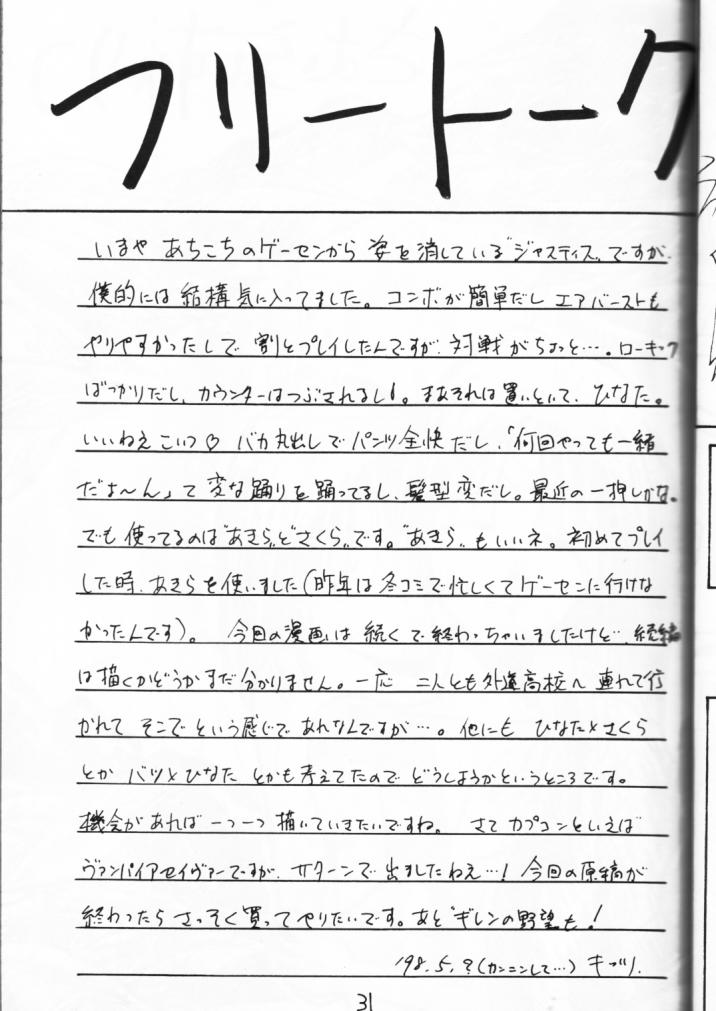 フリートーク
いまや あちこちのゲーセンから 姿を消している"ジャスティス"ですが、
僕的には 結構気に入ってました。コンボが簡単だし エアバーストも
やりやすかったしで 割とプレイしたんですが、対戦がちょっと…。ローキック
ばっかりだし、カウンターはつぶされるし!。まあそれは置いといて、ひなた。
いいねえこいつ♡ バカ丸出しで パンツ全快だし、「何回やっても一緒
だよ〜ん」て 変な踊りを踊ってるし、髪型変だし。最近の一押しかな。
でも 使ってるのは"あきら"と"さくら"です。"あきら"もいいネ。初めてプレイ
した時、あきらを使いました(昨年は冬コミで忙しくてゲーセンに行けな
かったんです)。 今回の漫画は 続くで終わっちゃいましたけど、続編
は描くかどうかまだ分かりません。一応 二人とも外道高校へ 連れて行
かれて そこで という感じで あれなんですが…。他にも ひなた×さくら
とか バツ×ひなた とかも考えてたので どうしようかというところです。
機会があれば 一つ一つ 描いていきたいですね。 さて カプコンといえば
ヴァンパイアセイヴァーですが、サターンで 出ましたねえ…! 今回の原稿が
終わったら さっそく買ってやりたいです。あと"ギレンの野望"も!
'98.5.?(カンニンして…)
31